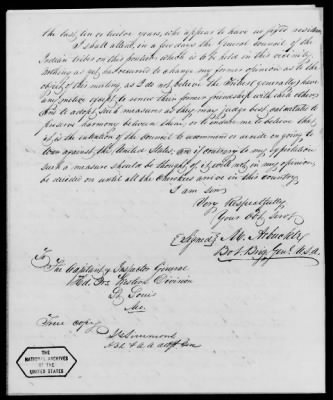 the last, ten or twelve years, who appear to have no fixed residence
I shall attend, in a few days the General Council of the
Indian tribes on this frontier, which is to be held in this vicinity
nothing as yet, has occurred to change my former opinion as to the
object of this meeting, as I do not believe the Indians generally have
any motive except to renew their former friendship with each other
and to adopt such measures as they may judge best calculated to
preserve harmony between them, or to induce me to believe that
it is the intention of the Council to recommend or decide on going to
war against the United States, and if contrary to my expectation
such a measure should be thought of, it will not, in my opinion,
be decided on until all the Cherokees arrive in this country.
I am Sir
Very Respectfully
Your Obt. Servt.
(Signed) M. Arbuckle
Bvt. Brig. Genl. U.S.A.
To
The Capitan & Inspector General
Hd. Qrs Western Division
St. Louis
Mo.
True copy
Simmons
THE
NATIONAL ARCHIVES
OF THE
UNITED STATES